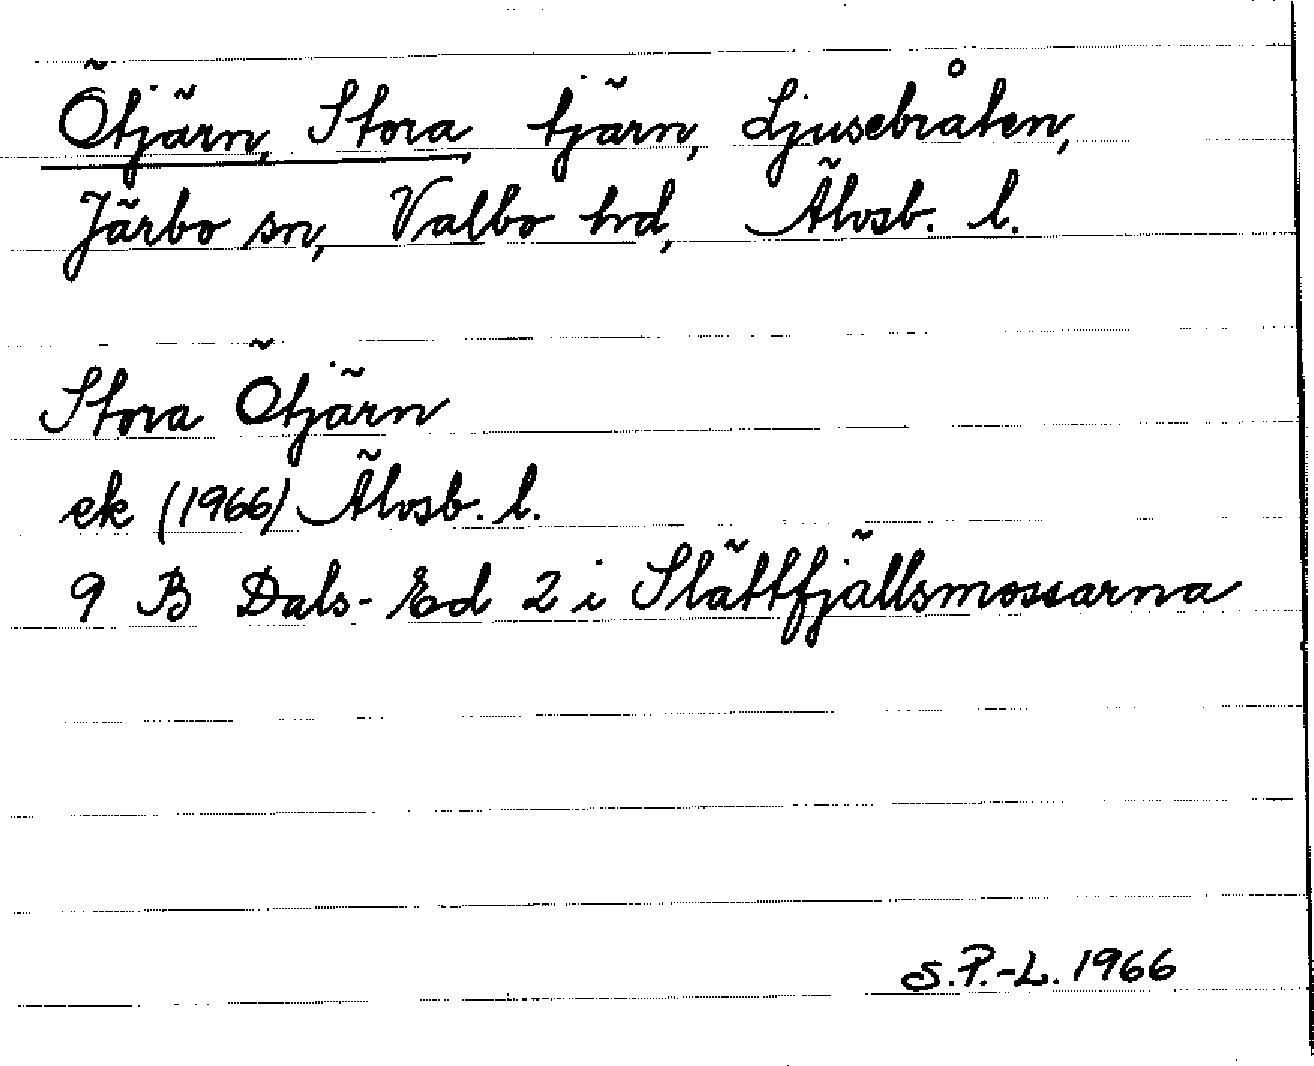 Ötjärn, Stora tjärn, Ljusebråten,
Järbo sn, Valbo hd, Älvsb. l.
Stora Ötjärn
ek (1966) Älvsb. l.
9 B Dals-Ed 2 i Slättfjällsmossarna
S.P.-L. 1966